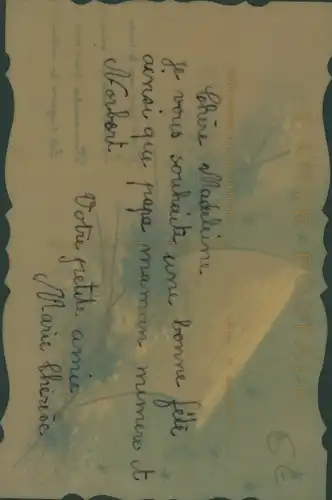 Chère Madeleine
je vous souhaite une bonne fête
ainsi que papa maman mimere et
Norbert.
Votre petite amie
Marie Thérèse